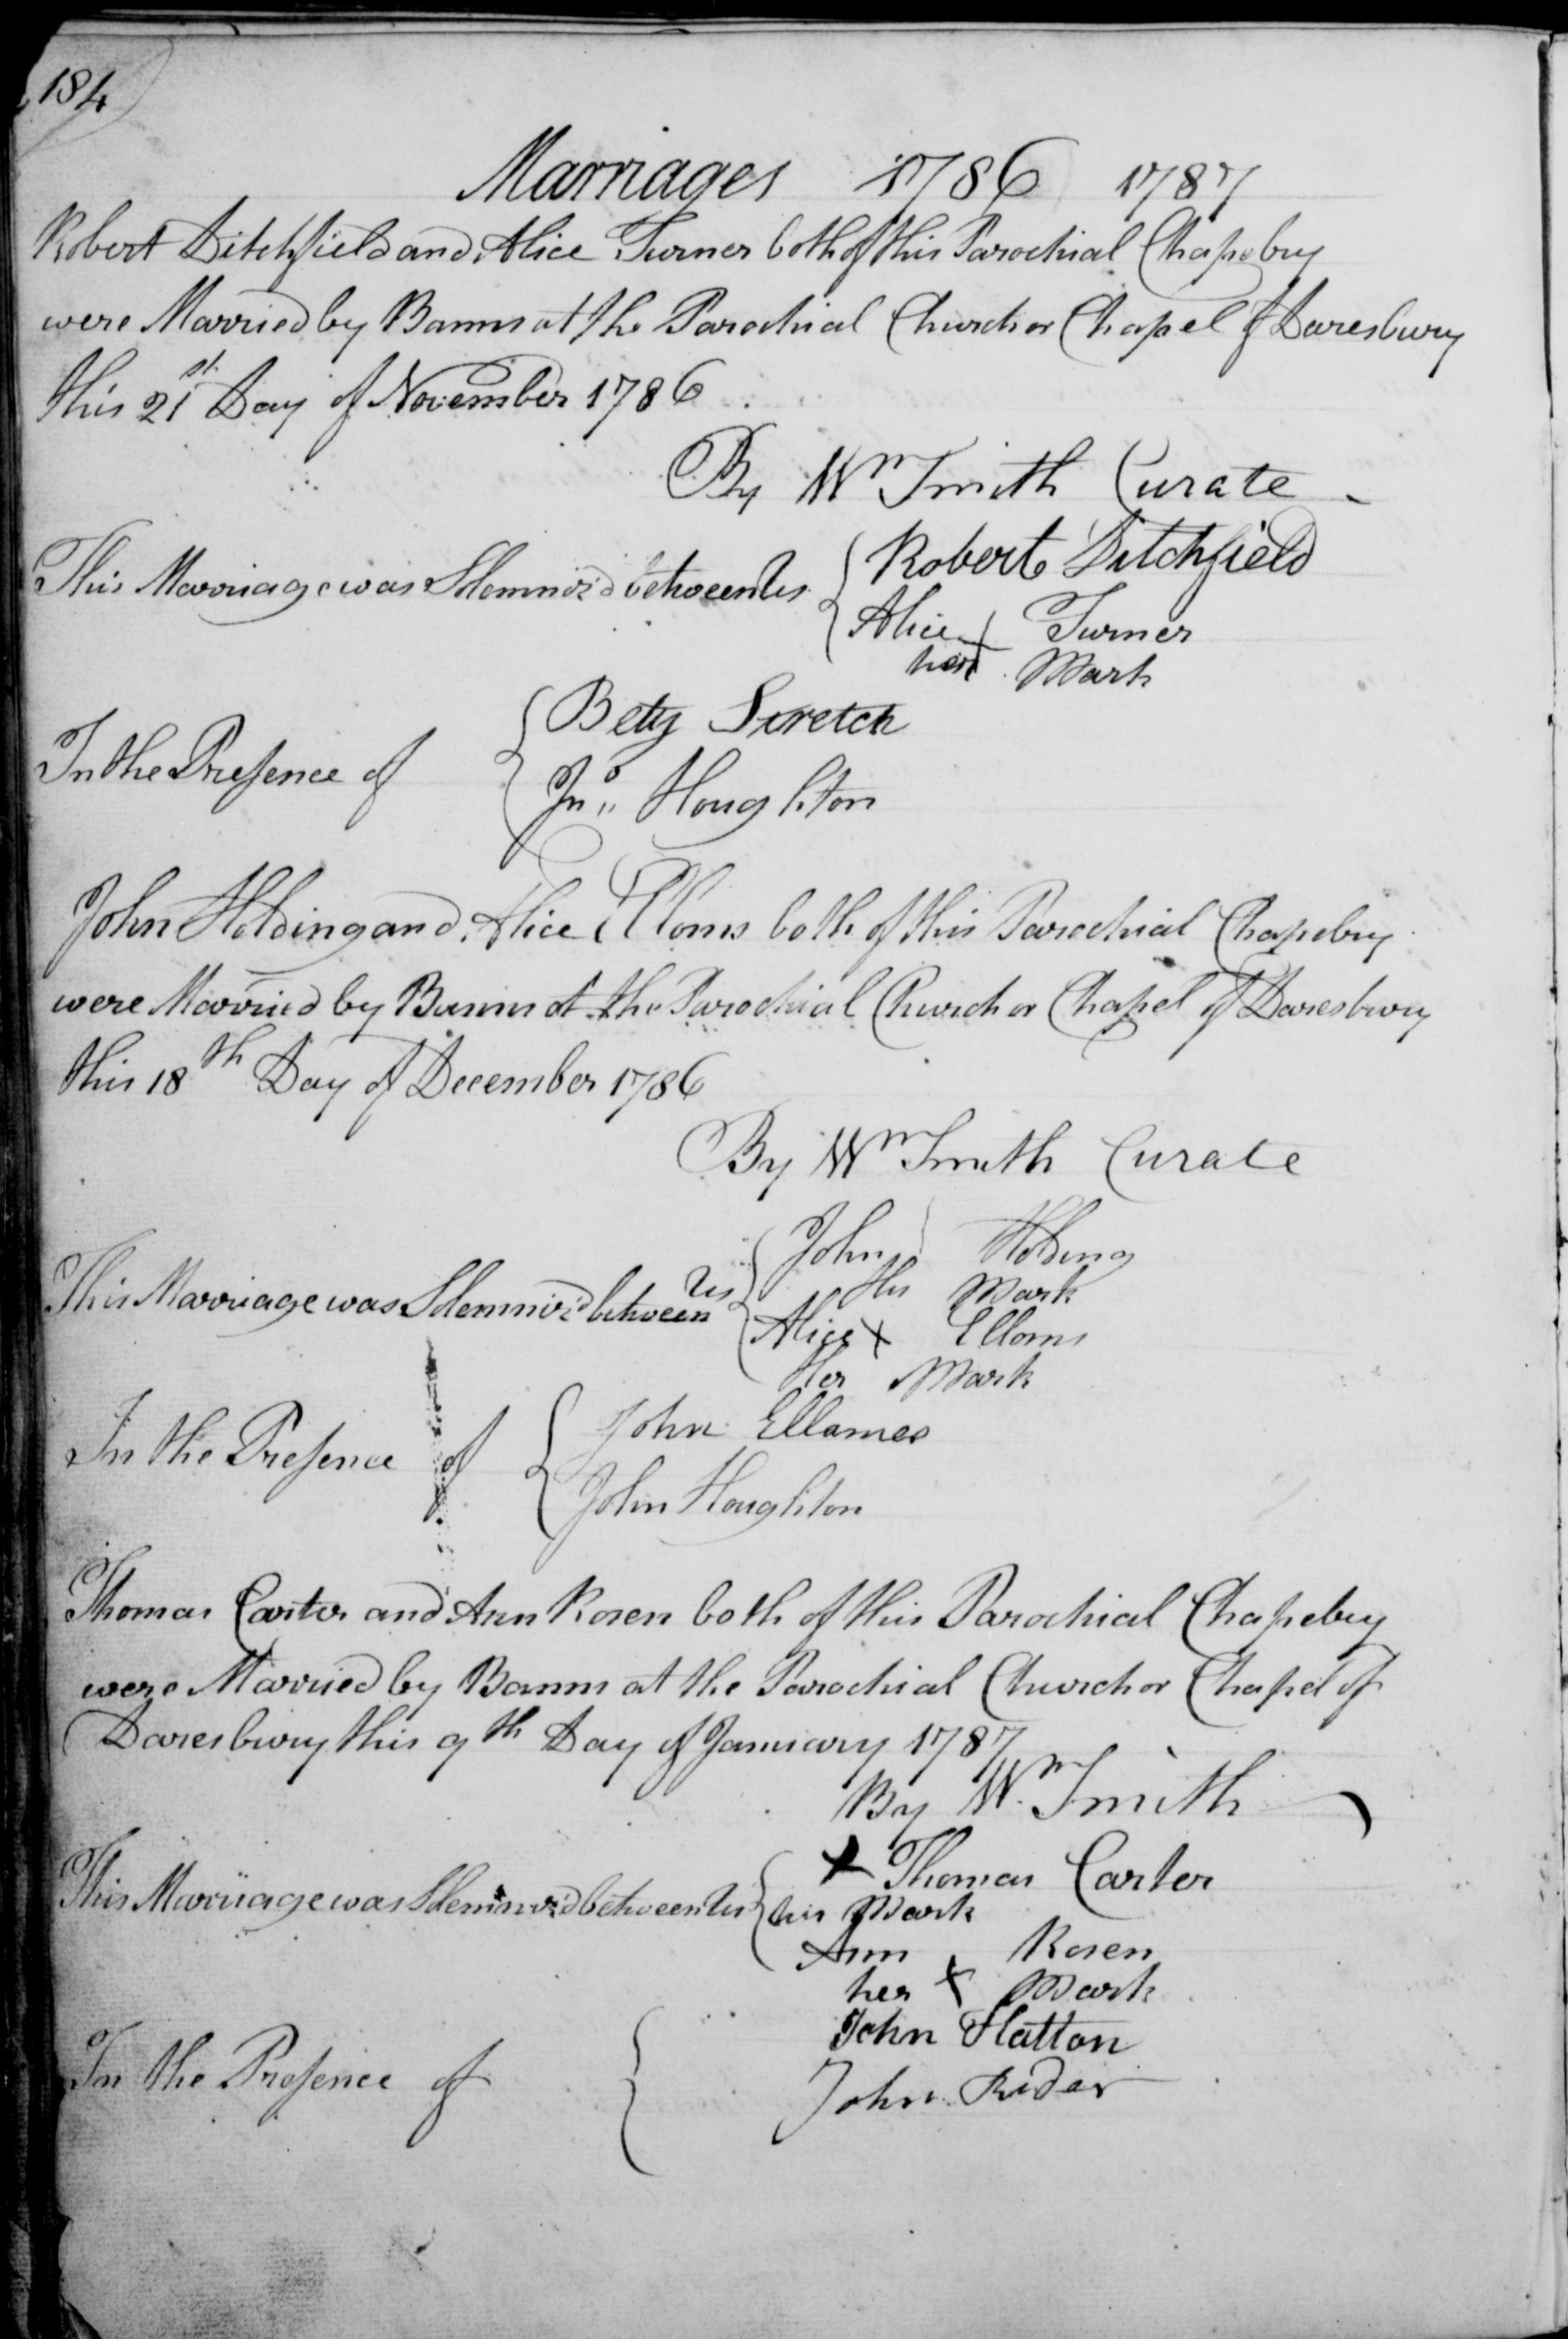 184
Marriages 1786 1787
Robert Ditchfield and Alice Turner both of this Parochial Chapelry
were Married by Banns at the Parochial Church or Chapel of Daresbury
this 21st Day of November 1786
By Wm Smith Curate
This Marriage was Solemniz'd between Us { Robert Ditchfield
Alice X Turner
her Mark
In the Presence of { Betty Stretch
Jno Houghton
John Holding and Alice Elloms both of this Parochial Chapelry
were Married by Banns at the Parochial Church or Chapel of Daresbury
this 18th Day of December 1786
By Wm Smith Curate
This Marriage was Solemniz'd between Us { John Holding
His Mark
Alice X Elloms
Her Mark
In the Presence of { John Ellames
John Houghton
Thomas Carter and Ann Rosen both of this Parochial Chapelry
were Married by Banns at the Parochial Church or Chapel of
Daresbury this 9th Day of January 1787
By Wm Smith
This Marriage was Solemniz'd between Us { X Thomas Carter
his Mark
Ann Rosen
her X Mark
In the Presence of { John Hatton
John Rider